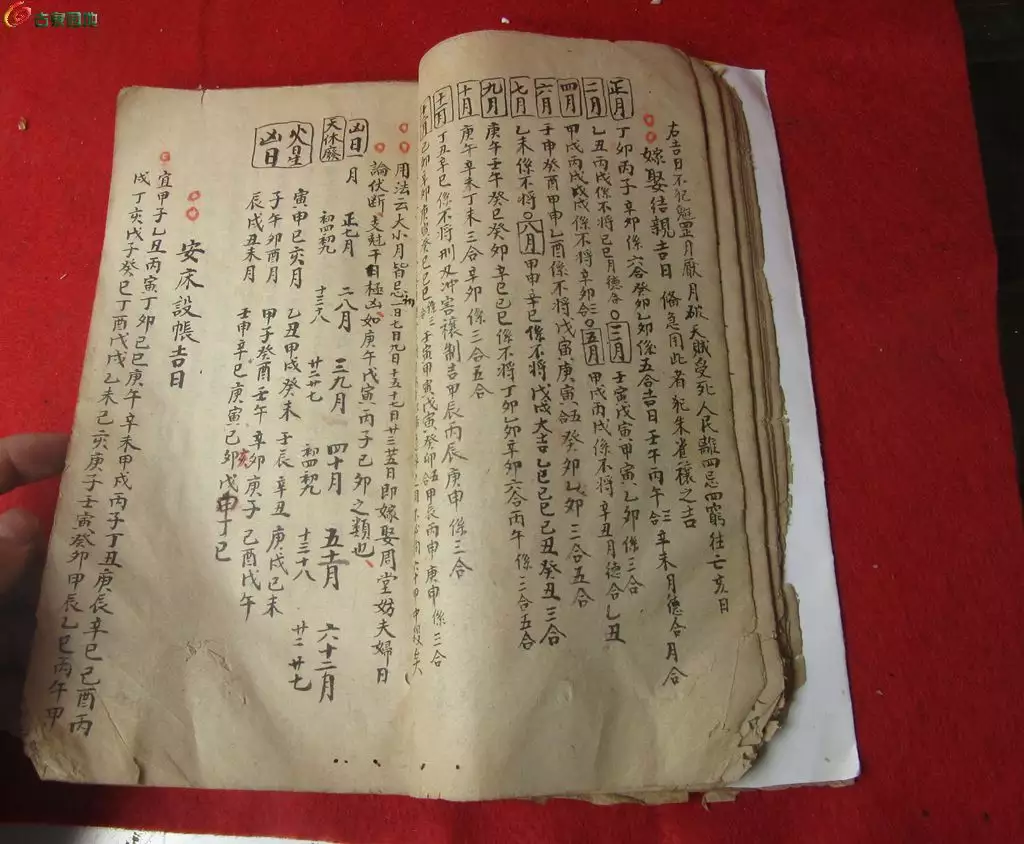 右吉日不犯魁罡月厭月破天賊受死人民離四忌四窮往亡亥日
嫁娶結親吉日 俻急用此者 犯朱雀穰之吉
正月 丁卯丙子辛卯係六合癸卯乙卯係五合吉日壬午丙午三合辛未月德合月合
二月 乙丑丙戌係不将己巳月德合〇三月 壬寅戊寅甲寅乙卯係三合
四月 甲戌丙戌戊戌係不将辛卯合〇五月 甲戌丙戌係不将辛丑月德合乙丑
六月 壬申癸酉甲申乙酉係不将戊寅庚寅五合癸卯乙卯三合五合
七月 乙未係不将〇八月 甲申辛巳係不将戊戌大吉乙巳己巳己丑癸丑三合
九月 庚午壬午癸巳癸卯辛巳己巳係不将丁卯乙卯辛卯六合丙午係三合五合
十月 庚午辛未丁未三合辛卯係三合五合
十一月 丁丑辛巳係不将刑及冲害穰制吉甲辰丙辰庚申係三合
用法云大小月皆忌初一日七日九日十五十七日廿三廿五日即嫁娶周堂妨夫婦日
論伏断支尅干日極凶如庚午戊寅丙子己卯之類也
凶日一月 正七月 二八月 三九月 四十月 五十一月 六十二月
天休廢 初四初九 十三十八 廿二廿七 初四初九 十三十八 廿二廿七
火星凶日 寅申巳亥月 乙丑甲戌癸未壬辰辛丑庚戌己未
子午卯酉月 甲子癸酉壬午辛卯庚子己酉戊午
辰戌丑未月 壬申辛巳庚寅己亥戊申丁巳
安床設帳吉日
宜甲子乙丑丙寅丁卯己巳庚午辛未甲戌丙子丁丑庚辰辛巳己酉丙
戌丁亥戊子癸巳丁酉戊戌乙未己亥庚子壬寅癸卯甲辰乙巳丙午甲
古泉园地